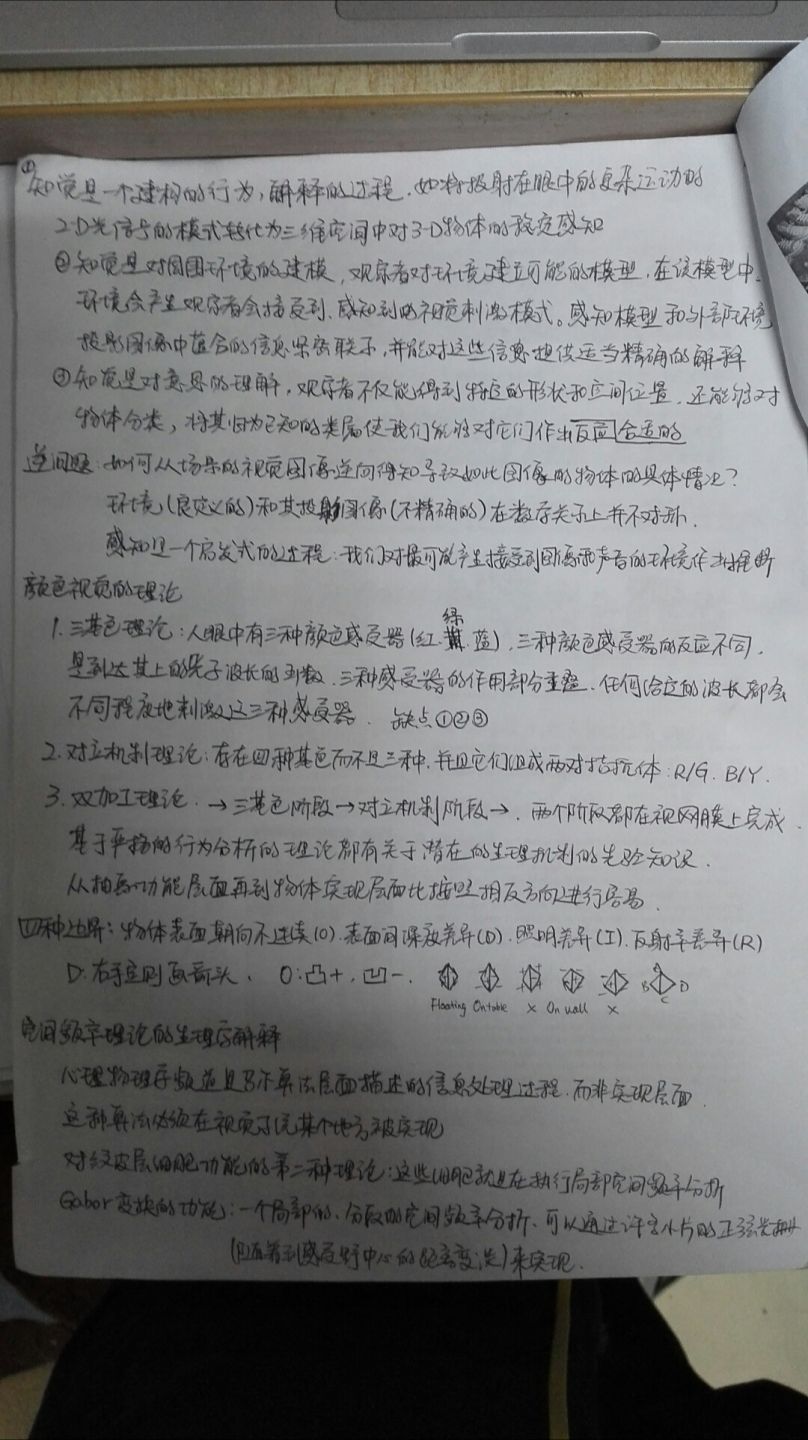 ①知觉是一个建构的行为,解释的过程.如将投射在眼中的复杂运动的
2-D光信号的模式转化为三维空间中对3-D物体的稳定感知
②知觉是对周围环境的建模,观察者对环境建立可能的模型,在该模型中
环境会产生观察者会接受到、感知到的视觉刺激模式。感知模型和外部环境
投影图像中蕴含的信息紧密联系,并能对这些信息提供适当精确的解释
③知觉是对意义的理解,观察者不仅能得到特定的形状和空间位置,还能够对
物体分类,将其归为已知的类属使我们能够对它们作出反应合适的
逆问题:如何从场景的视觉图像逆向得知导致如此图像的物体的具体情况?
环境(良定义的)和其投射图像(不精确的)在数学关系上并不对称.
感知是一个启发式的过程:我们对最可能产生接受到图像或声音的环境作出推断
颜色视觉的理论
1.三基色理论:人眼中有三种颜色感受器(红.绿.蓝),三种颜色感受器的反应不同,
是到达其上的光子波长的函数.三种感受器的作用部分重叠.任何给定的波长都会
不同程度地刺激这三种感受器. 缺点①②③
2.对立机制理论:存在四种基色而不是三种.并且它们组成两对拮抗体:R/G. B/Y.
3.双加工理论.→三基色阶段→对立机制阶段→.两个阶段都在视网膜上完成.
基于严格的行为分析的理论都有关于潜在的生理机制的先验知识.
从抽象功能层面再到物体实现层面比按照相反方向进行容易.
四种边界:物体表面朝向不连续(O).表面间深度差异(D).照明差异(I).反射率差异(R)
D:右手定则画箭头. O:凸+.凹-.
Floating On table × On wall × B C D
空间频率理论的生理学解释
心理物理学频道是另个算法层面描述的信息处理过程.而非实现层面.
这种算法必须在视觉系统某个地方被实现
对纹皮层细胞功能的第二种理论:这些细胞就是在执行局部空间频率分析
Gabor变换的功能:一个局部的、分段的空间频率分析、可以通过许多小片的正弦光栅
(随着到感受野中心的距离变淡)来实现.